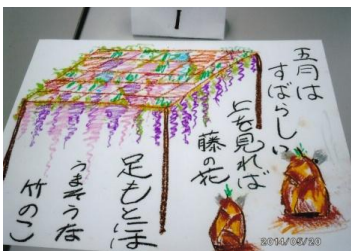 1
五月は
すばらしい
上を見れば
藤の花
足もとには
うまそうな
竹のこ
2014/05/20